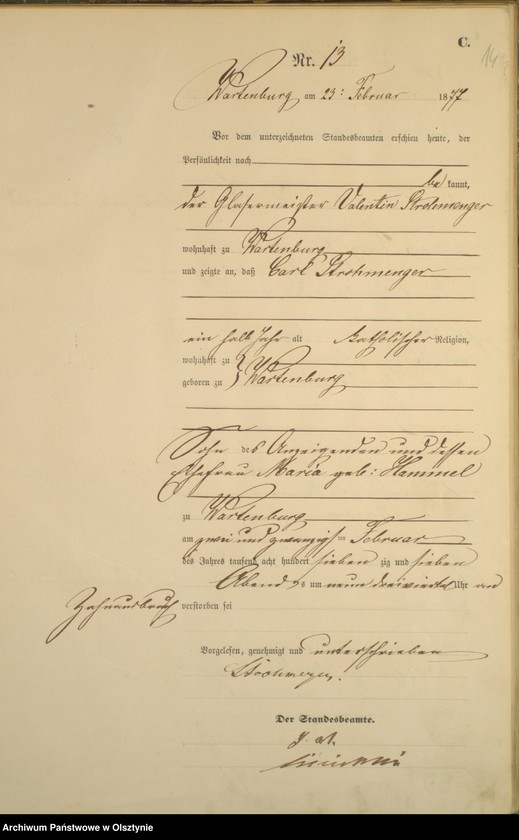 C.
14
Nr. 13
Wartenburg am 23: Februar 1877
Vor dem unterzeichneten Standesbeamten erschien heute, der
Persönlichkeit nach
be kannt,
der Glasermeister Valentin Strohmenger
wohnhaft zu Wartenburg
und zeigte an, daß Carl Strohmenger
ein halb Jahr alt katholischer Religion,
wohnhaft zu
geboren zu } Wartenburg
Sohn des Anzeigenden und dessen
Ehefrau Maria geb: Hammel
zu Wartenburg
am zwei und zwanzigsten Februar
des Jahres tausend acht hundert sieben zig und sieben
Abends um neun dreiviertel Uhr an
Zahnausbruch verstorben sei
Vorgelesen, genehmigt und unterschrieben
Strohmenger.
Der Standesbeamte.
Archiwum Państwowe w Olsztynie